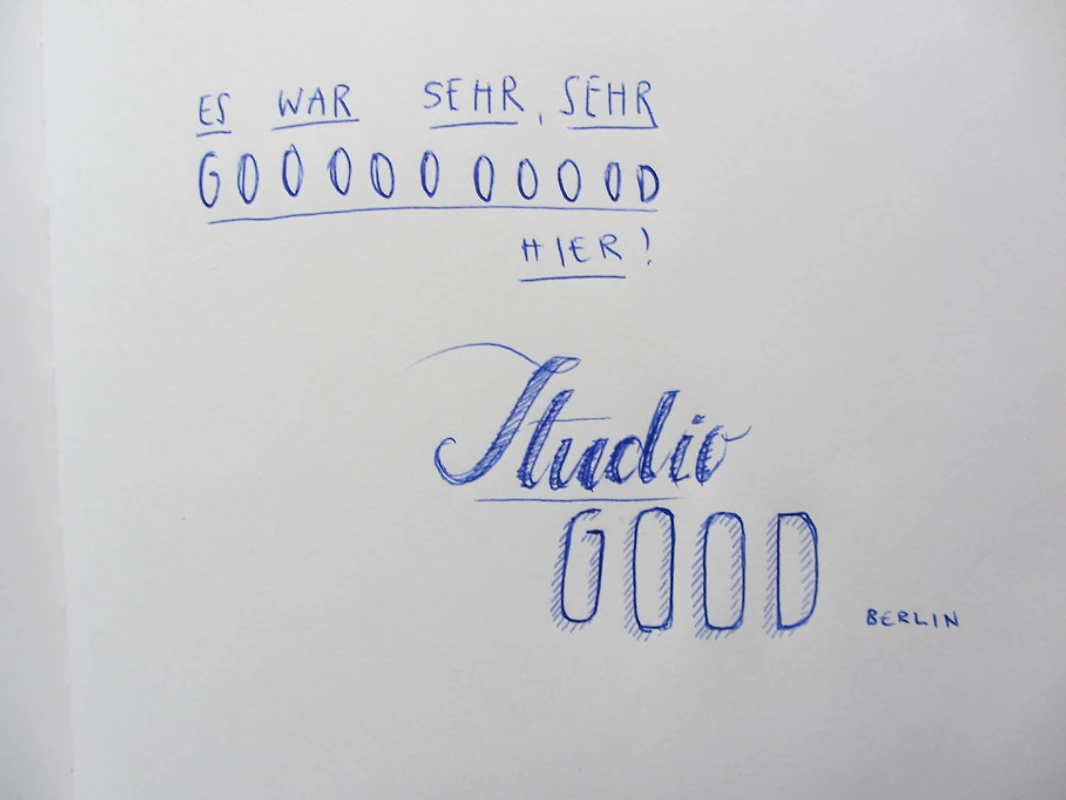 ES WAR SEHR, SEHR
GOOOOOOOOOD
HIER!
Studio
GOOD
BERLIN